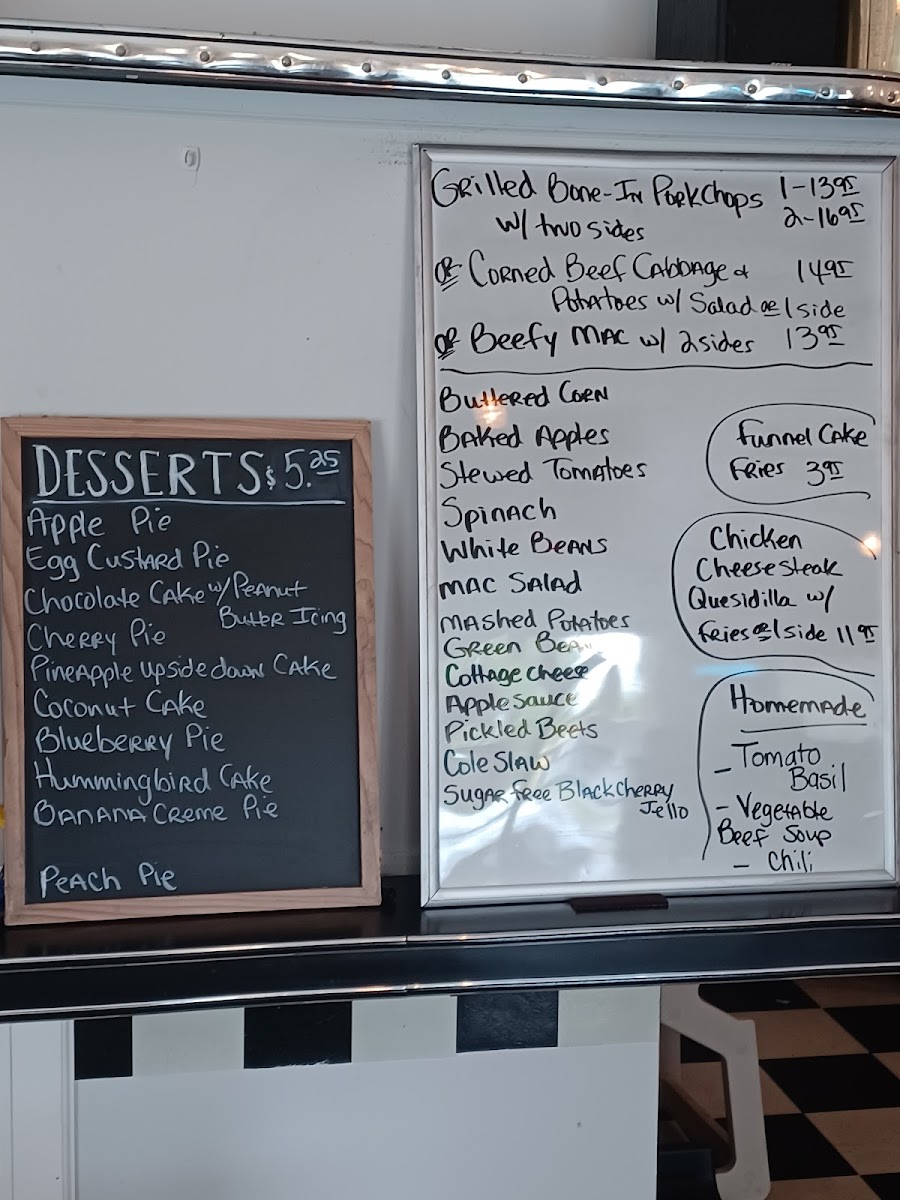 DESSERTS $5.25
Apple Pie
Egg Custard Pie
Chocolate Cake w/Peanut
Butter Icing
Cherry Pie
Pineapple upside down Cake
Coconut Cake
Blueberry Pie
Hummingbird Cake
Banana Creme Pie
Peach Pie
Grilled Bone-In Pork Chops 1-13.95
w/ two sides 2-16.95
or Corned Beef Cabbage & 14.95
Potatoes w/ Salad or 1 side
or Beefy Mac w/ 2 sides 13.95
Buttered Corn
Baked Apples
Stewed Tomatoes
Spinach
White Beans
Mac Salad
Mashed Potatoes
Green Bean
Cottage cheese
Apple sauce
Pickled Beets
Cole Slaw
Sugar Free Black Cherry
Jello
Funnel Cake
Fries 3.95
Chicken
Cheesesteak
Quesidilla w/
Fries or 1 side 11.95
Homemade
- Tomato
Basil
- Vegetable
Beef Soup
- Chili